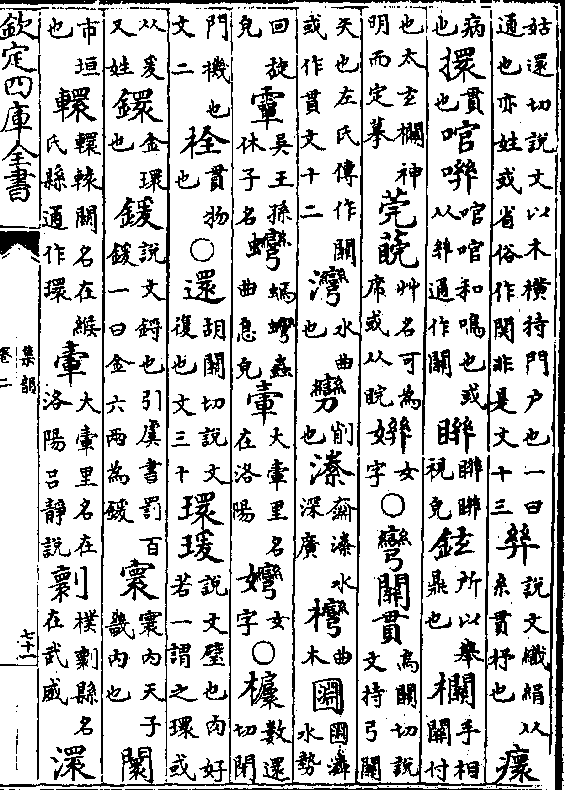 姑還切說文以木橫持門户也一曰通也亦姓或省俗作関非是文十三 𢇇 說文織絹从糸貫杼也 瘝
病也 擐 貫也 和鳴也或从𢇇通作關 視皃 鉉 所以舉鼎也 欄 手相關付
也太玄欄神明而定摹 莞 艸名可為席或从睆 女字 ○ 彎關貫 烏關切說文持弓關
矢也左氏傳作關或作貫文十二 灣 水曲也 削也 潫 奫潫水深廣也 曲木 水勢
回旋皃 吳王孫休子名 蟲曲息皃 大 里名在洛陽 女字 ○ 數還切閉
門機也文二 栓 貫物也 ○ 還 胡關切說文復也文三十 環瑗 說文璧也肉好若一謂之環或
从爰又姓 鐶 金環也 鍰 說文鋝也引虞書罰百鍰一曰金六兩為鍰 寰 寰内天子畿内也 闤
市垣也 轘 轘轅關名在緱氏縣通作環 大 里名在洛陽呂靜說 樸 縣名在武威 澴
欽定四庫全書
集韻
卷二
七十一